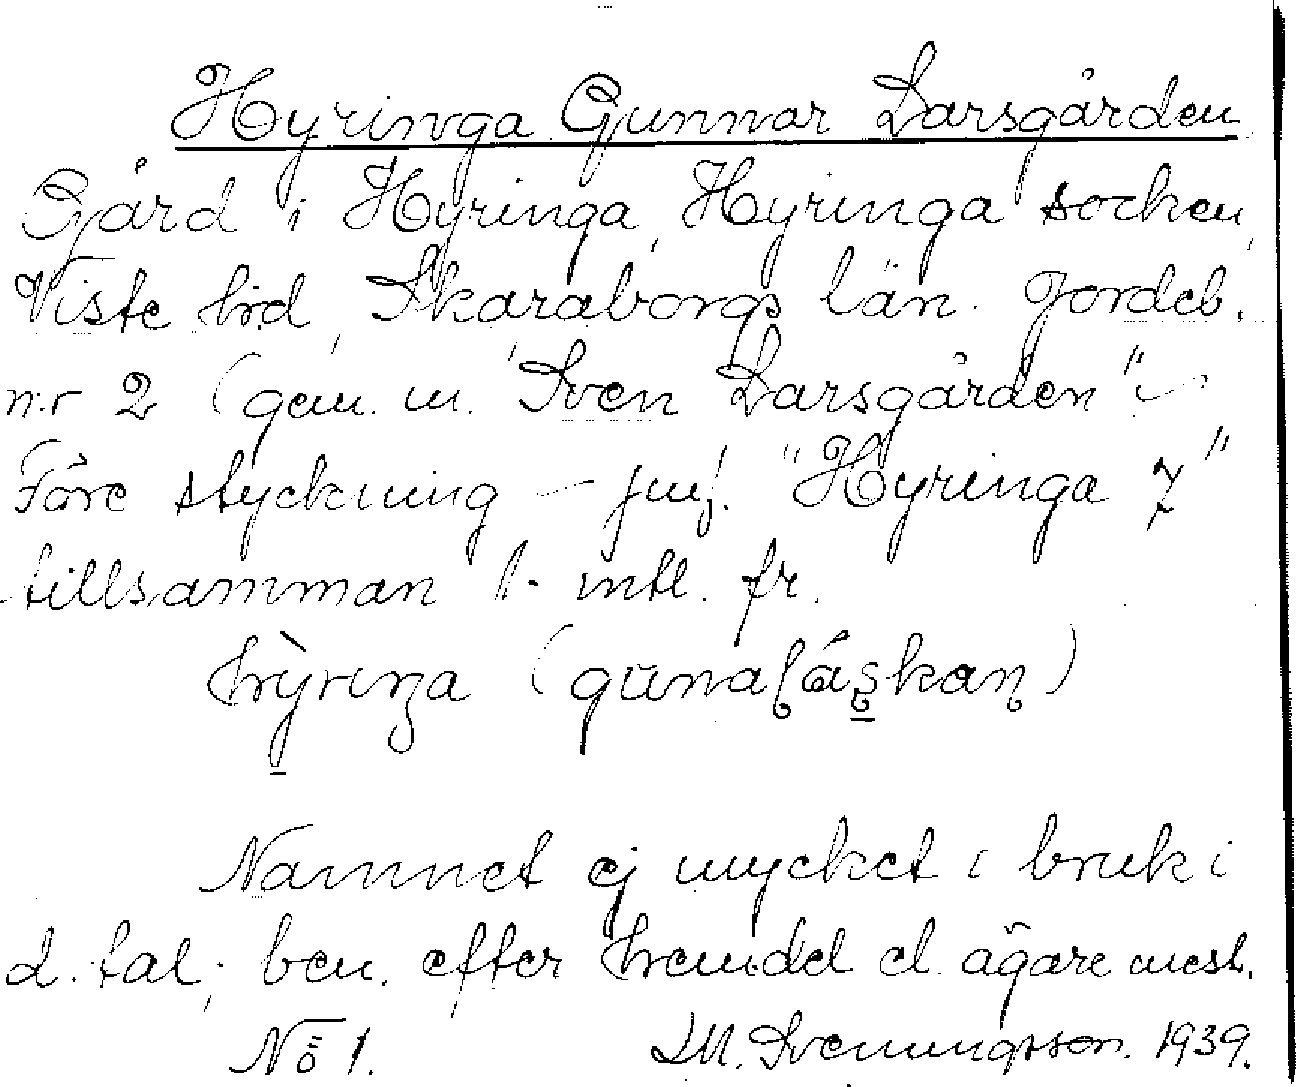 Hyringa Gunnar Larsgården
Gård i Hyringa, Hyringa socken,
Viste hd, Skaraborgs län. Jordeb.
n:r 2 (gem. m. "Sven Larsgården" –
Före styckning – jmf. "Hyringa 7"
tillsamman 1. mtl. fr.
hỳriŋa (gunaɭáʂkaɳ)
Namnet ej mycket i bruk i
d. tal; ben. efter hemdel el. ägare mest.
No 1. I.M. Svenungsson. 1939.